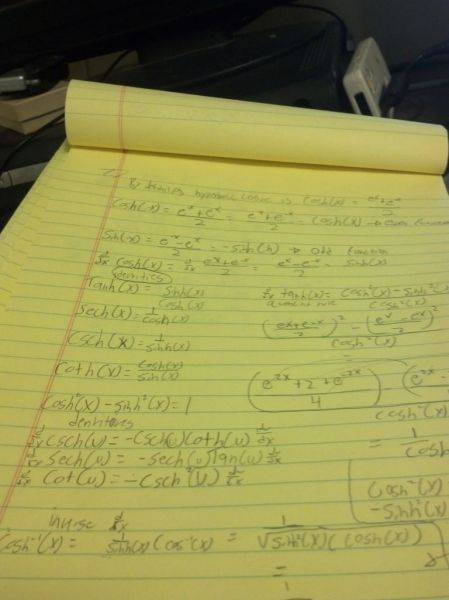 By hyperbolic cosine is cosh(x) = e^x+e^-x / 2
Cosh(-x) = e^-x+e^x / 2 = e^x+e^-x / 2 = cosh(x) → even function
Sinh(-x) = e^-x-e^x / 2 = -sinh(x) → odd function
d/dx cosh(x) = d/dx e^x+e^-x / 2 = e^x-e^-x / 2 = sinh(x)
identities
Tanh(x) = sinh(x) / cosh(x)
d/dx tanh(x) = cosh²(x) - sinh²(x) / cosh²(x)
quotient rule
Sech(x) = 1 / cosh(x)
(e^x+e^-x / 2)² - (e^x-e^-x / 2)²
cosh²(x)
Csch(x) = 1 / sinh(x)
=
Coth(x) = cosh(x) / sinh(x)
(e^2x + 2 + e^-2x / 4) - (e^2x -
cosh²(x)
Cosh²(x) - sinh²(x) = 1
= 1 / cosh
d/dx csch(u) = -csch(u) coth(u) d/dx
d/dx sech(u) = -sech(u) tan(u) d/dx
d/dx Cot(u) = -csch²(u) d/dx
cosh²(x)
- sinh²(x)
inverse d/dx
Cosh^-1(x) = 1 / sinh(x) (cos^-1(x) = 1 / √sinh²(x) (cosh(x))
=
1